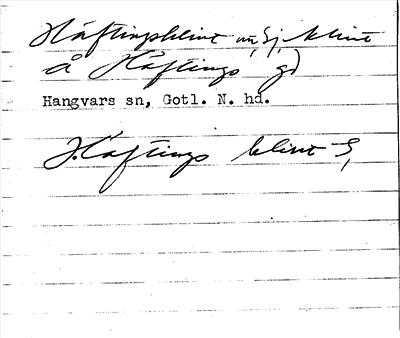 Häftingsklint
å Häftings gd
Hangvars sn, Gotl. N. hd.
Häftings klint